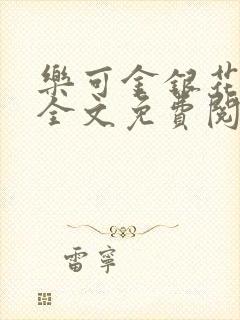 樂可金銀花
全文免費閱
雷寧